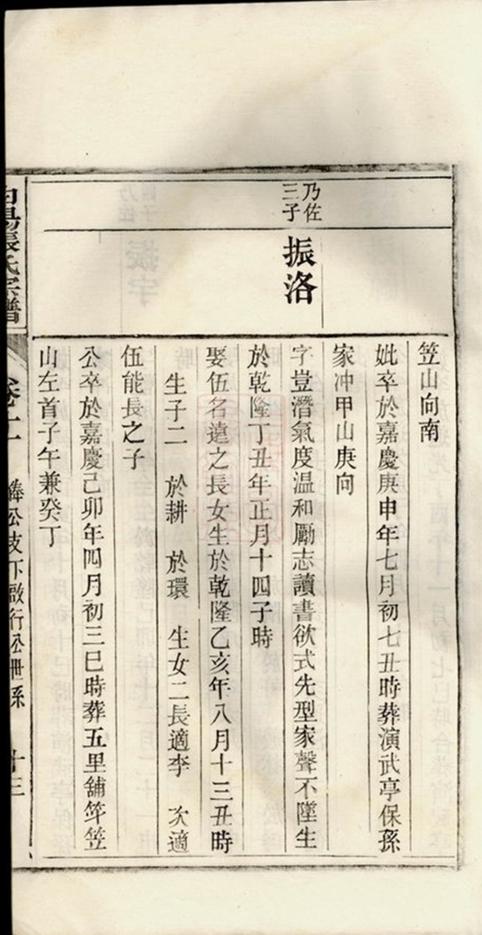 笠山向南
妣卒於嘉慶庚申年七月初七丑時葬演武亭保孫
家冲甲山庚向
乃佐
三子
振洛
字豈潛氣度温和勵志讀書欲式先型家聲不墜生
於乾隆丁丑年正月十四子時
娶伍名遠之長女生於乾隆乙亥年八月十三丑時
生子二 於耕 於環 生女二長適李 次適
伍能長之子
公卒於嘉慶己卯年四月初三巳時葬五里舖笄笠
山左首子午兼癸丁
張氏宗譜
卷十二 公支下啟行公世系 十三